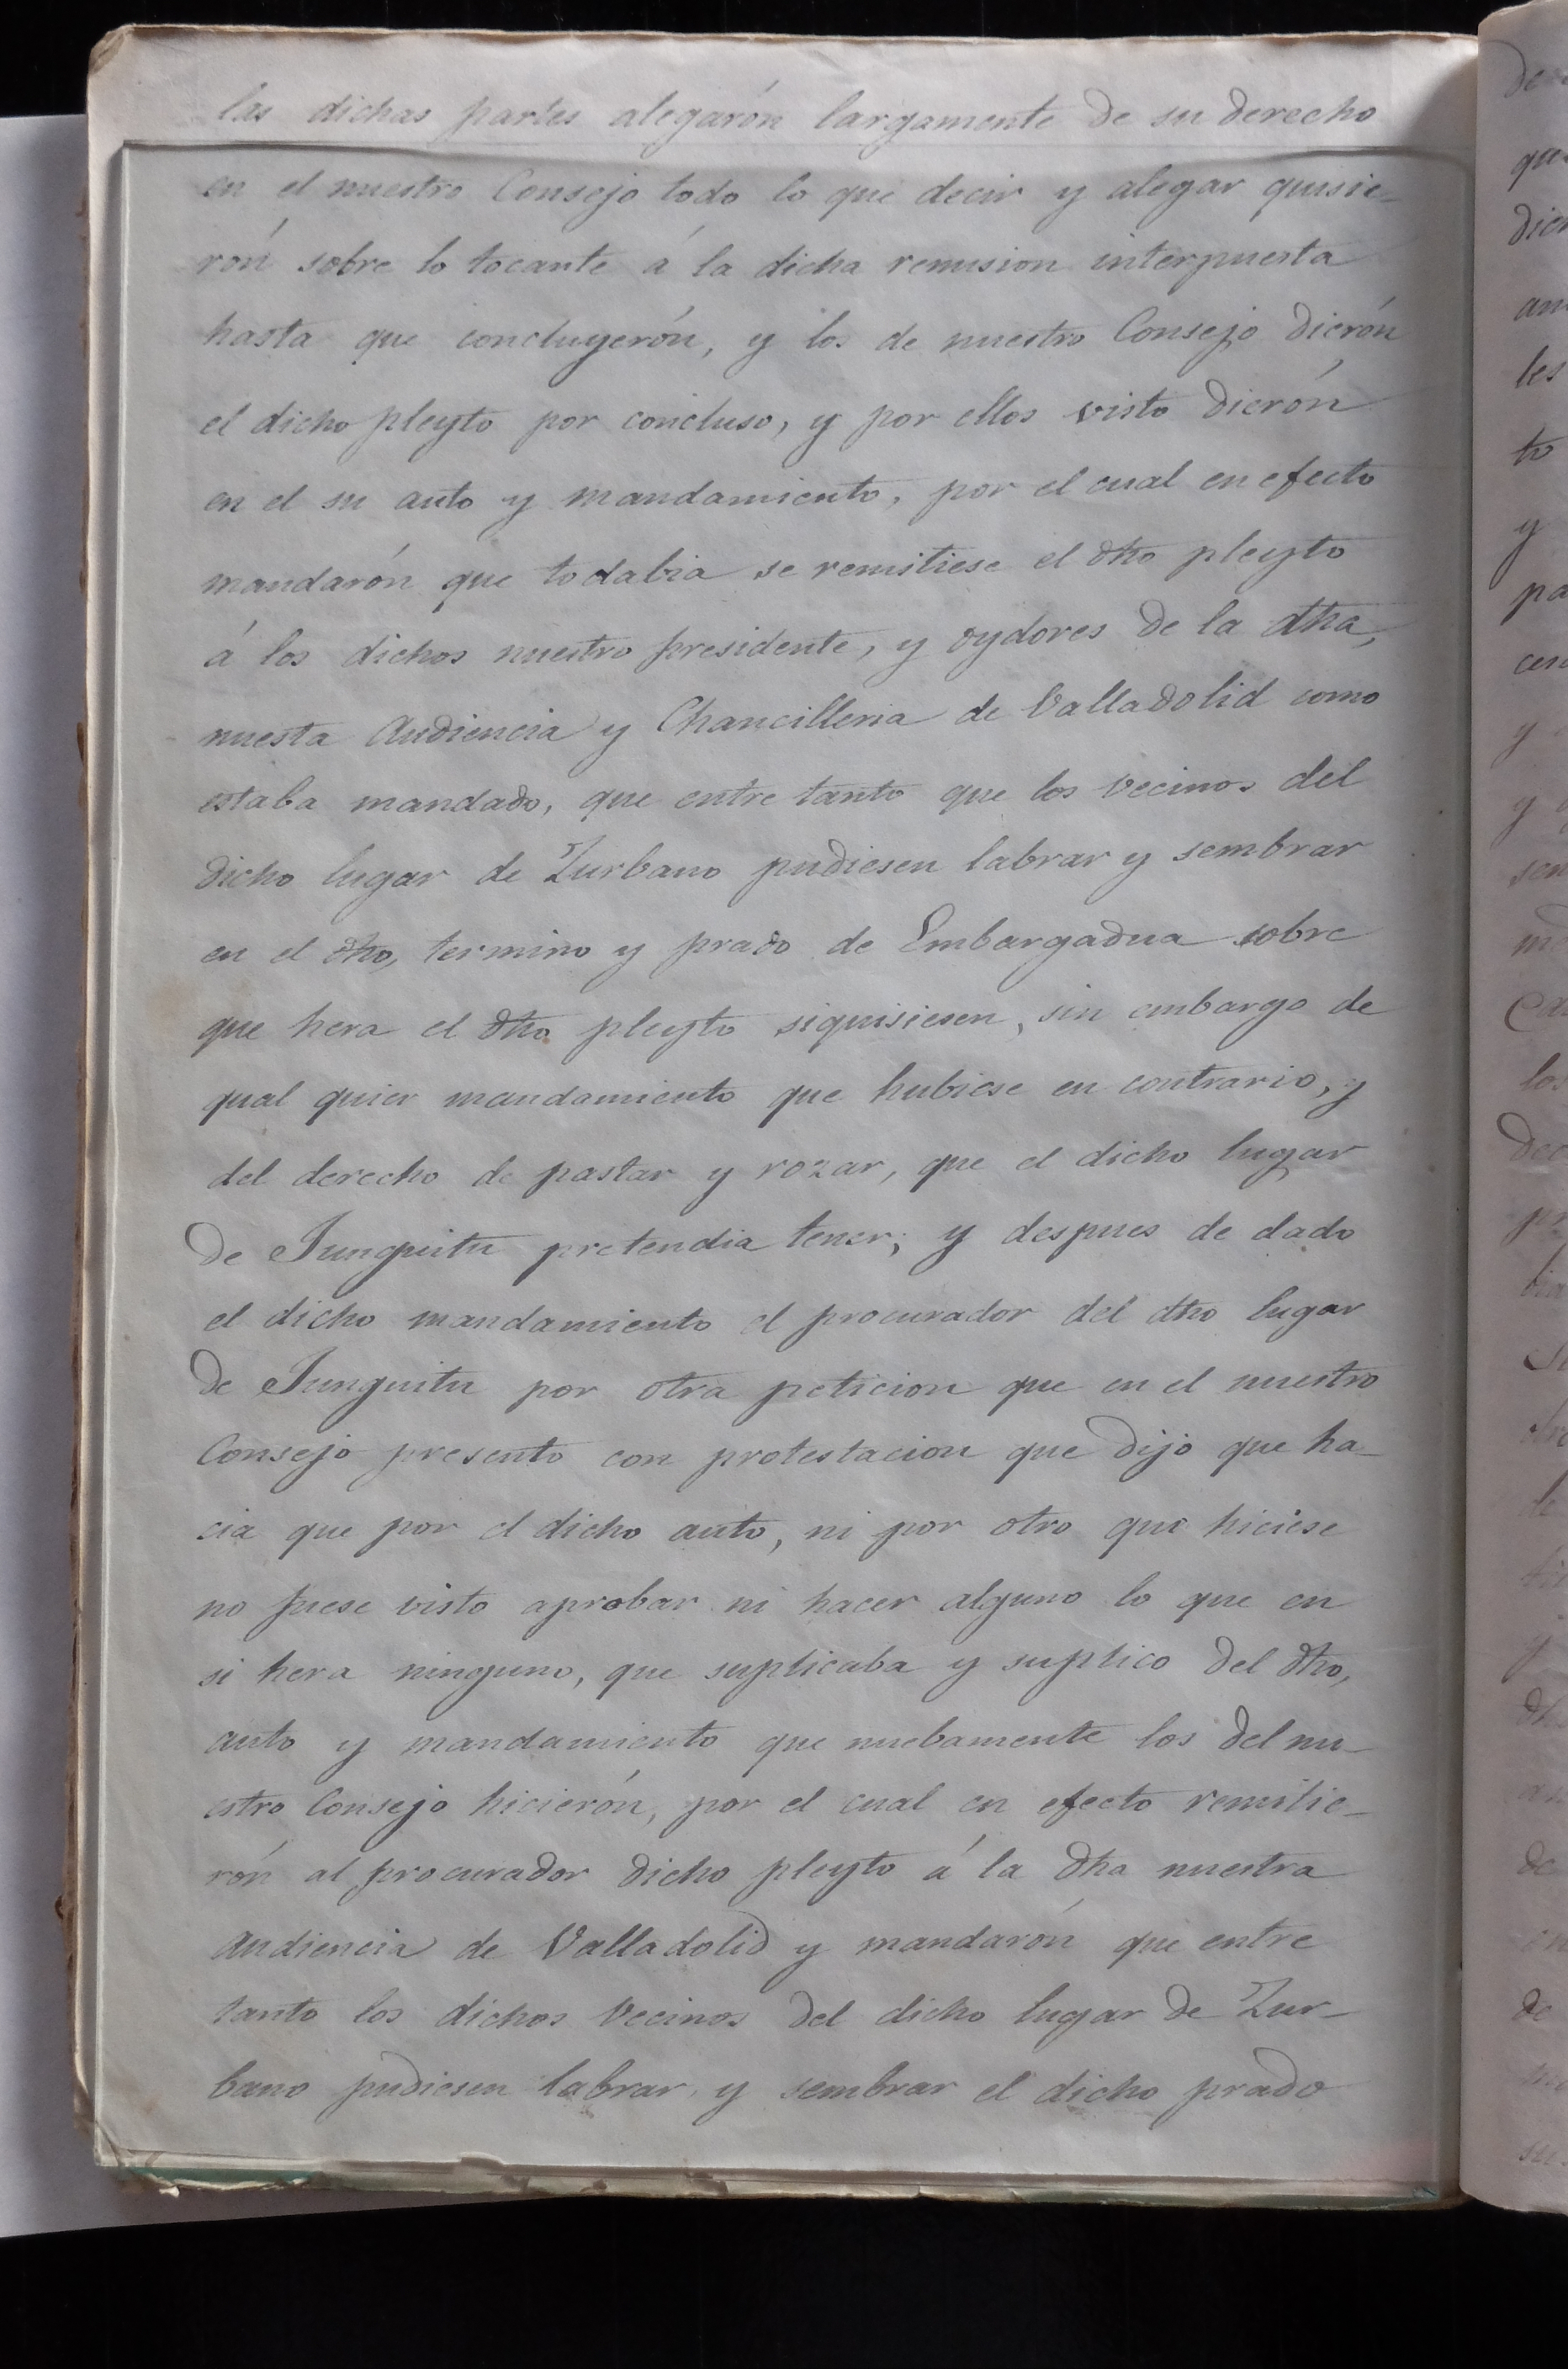 las dichas partes alegarón largamente de su derecho
en el nuestro Consejo todo lo que decir y alegar quisie-
rón sobre lo tocante á la dicha remision interpuesta
hasta que concluyerón, y los de nuestro Consejo dierón
el dicho pleyto por concluso, y por ellos visto dierón
en el su auto y mandamiento, por el cual en efecto
mandarón que todabia se remitiese el dho pleyto
á los dichos nuestro presidente, y oydores de la dha,
nuesta Audiencia y Chancilleria de Valladolid como
estaba mandado, que entre tanto que los vecinos del
dicho lugar de Zurbano pudiesen labrar y sembrar
en el dho, termino y prado de Embargadua sobre
que hera el dho pleyto siquisiesen, sin embargo de
qual quier mandamiento que hubiese en contrario, y
del derecho de pastar y rozar, que el dicho lugar
de Junguitu pretendia tener; y despues de dado
el dicho mandamiento el procurador del dho lugar
de Junguitu por otra peticion que en el nuestro
Consejo presento con protestacion que dijo que ha-
cia que por el dicho auto, ni por otro que hiciese
no fuese visto aprobar ni hacer alguno lo que en
si hera ninguno, que suplicaba y suplico del dho,
auto y mandamiento que nuebamente los del nu-
estro Consejo hicierón, por el cual en efecto remitie-
rón al procurador dicho pleyto á la dha nuestra
Audiencia de Valladolid y mandarón que entre
tanto los dichos vecinos del dicho lugar de Zur-
bano pudiesen labrar, y sembrar el dicho prado